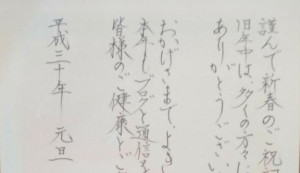 謹んで新春のご祝
旧年中は、多くの方々に
ありがとうござい
おかげさまでよき
本年もブログと通信を
皆様のご健康とご
平成三十年 元旦